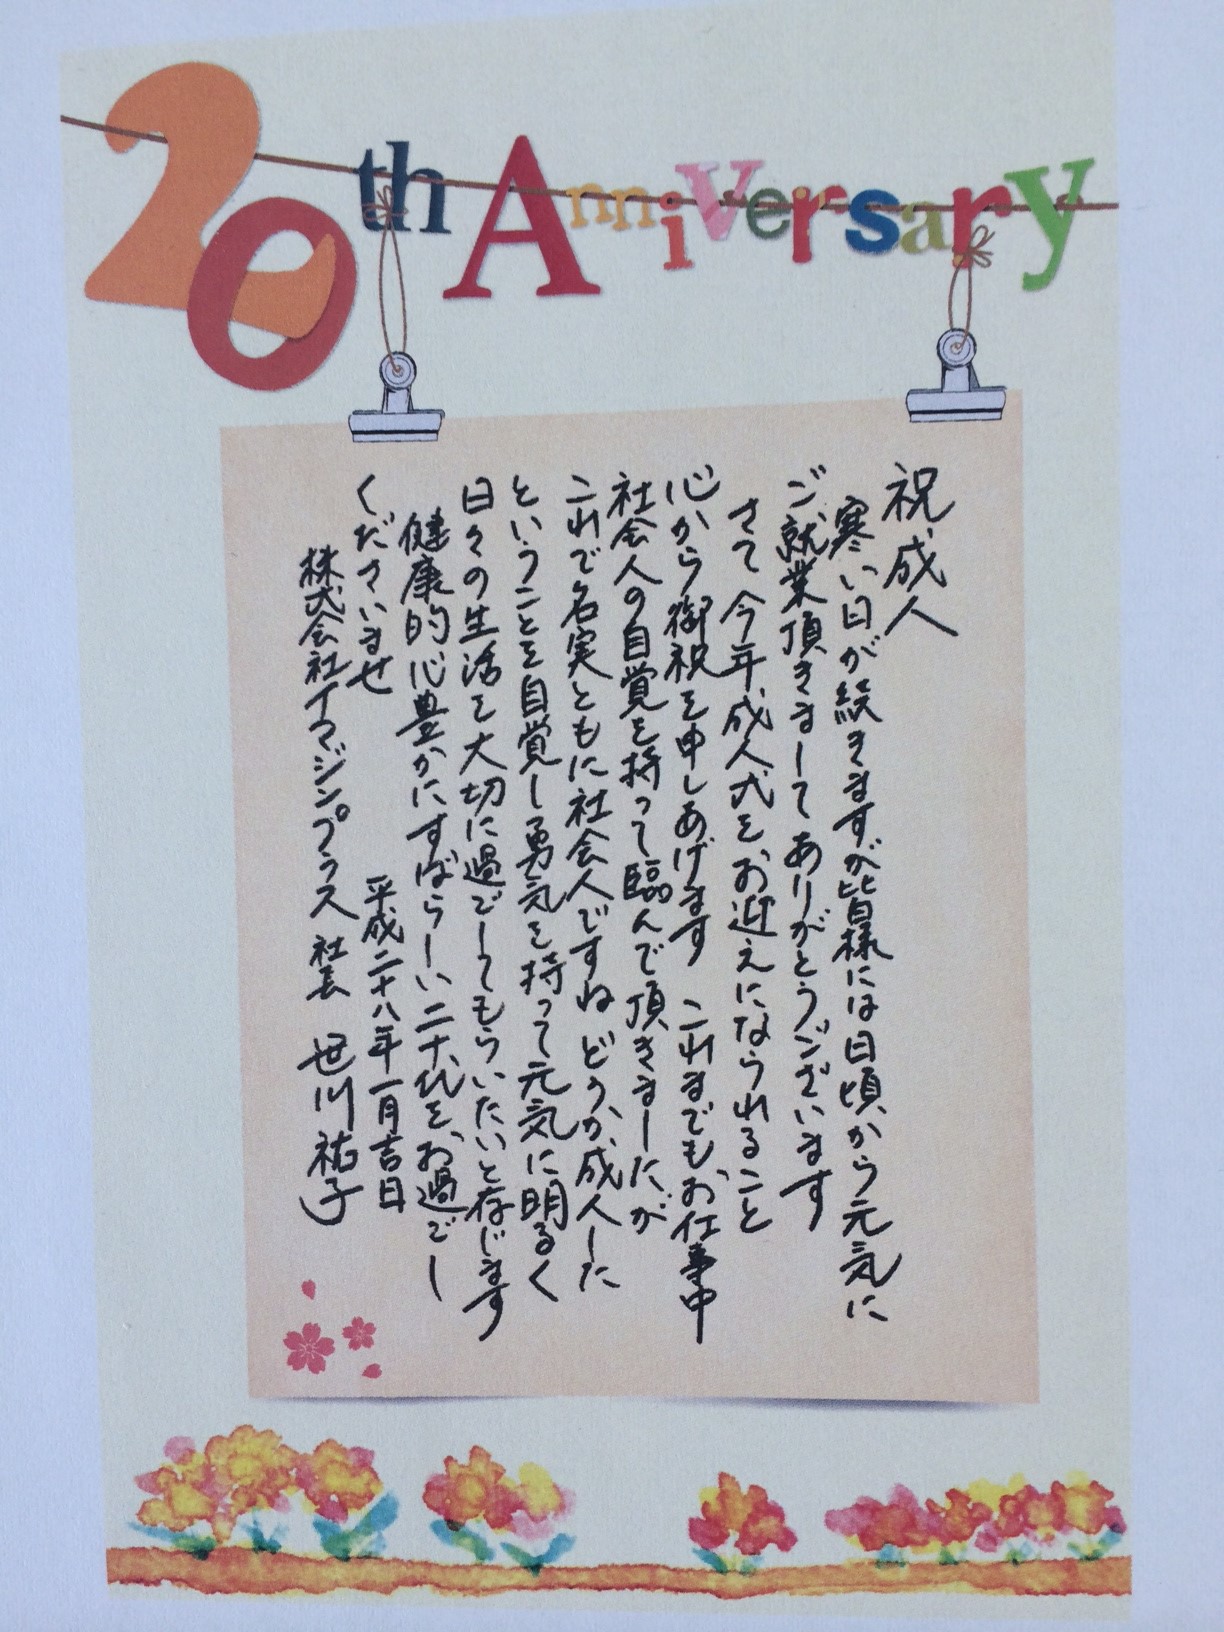 20th Anniversary
祝成人
寒い日が続きますが皆様には日頃から元気に
ご就業頂きましてありがとうございます
さて今年成人式をお迎えになられること
心から御祝を申しあげます これまでもお仕事中
社会人の自覚を持って臨んで頂きましたが
これで名実ともに社会人ですね どうか成人した
ということを自覚し勇気を持って元気に明るく
日々の生活を大切に過ごしてもらいたいと存じます
健康的心豊かにすばらしい二十代をお過ごし
くださいませ
平成二十八年一月吉日
株式会社イマジンプラス 社長 笹川祐子